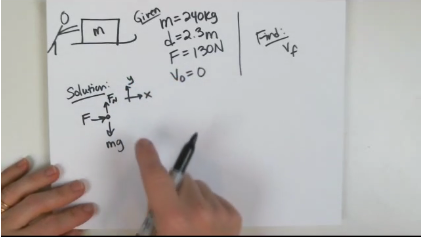 m
Given
m = 240kg
d = 2.3m
F = 130N
v₀ = 0
Find:
v_f
Solution:
F_N
y
x
F
mg